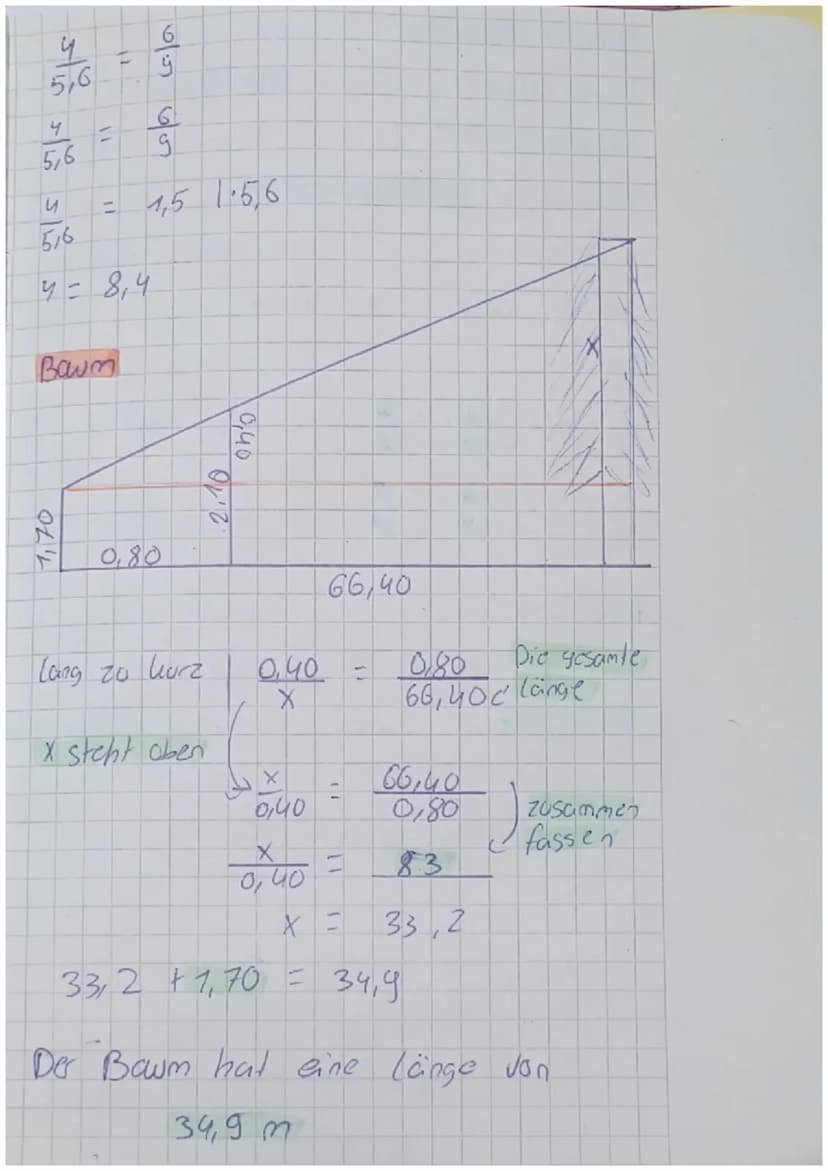 y/5,6 = 6/9
y/5,6 = 6/9
y/5,6 = 1,5 |·5,6
y = 8,4
Baum
x
0,40
2,10
1,70
0,80
66,40
lang zu kurz | 0,40/x = 0,80/66,40 Die gesamte länge
x steht oben
x/0,40 = 66,40/0,80 zusammen fassen
x/0,40 = 83
x = 33,2
33,2 + 1,70 = 34,9
Der Baum hat eine länge von
34,9 m